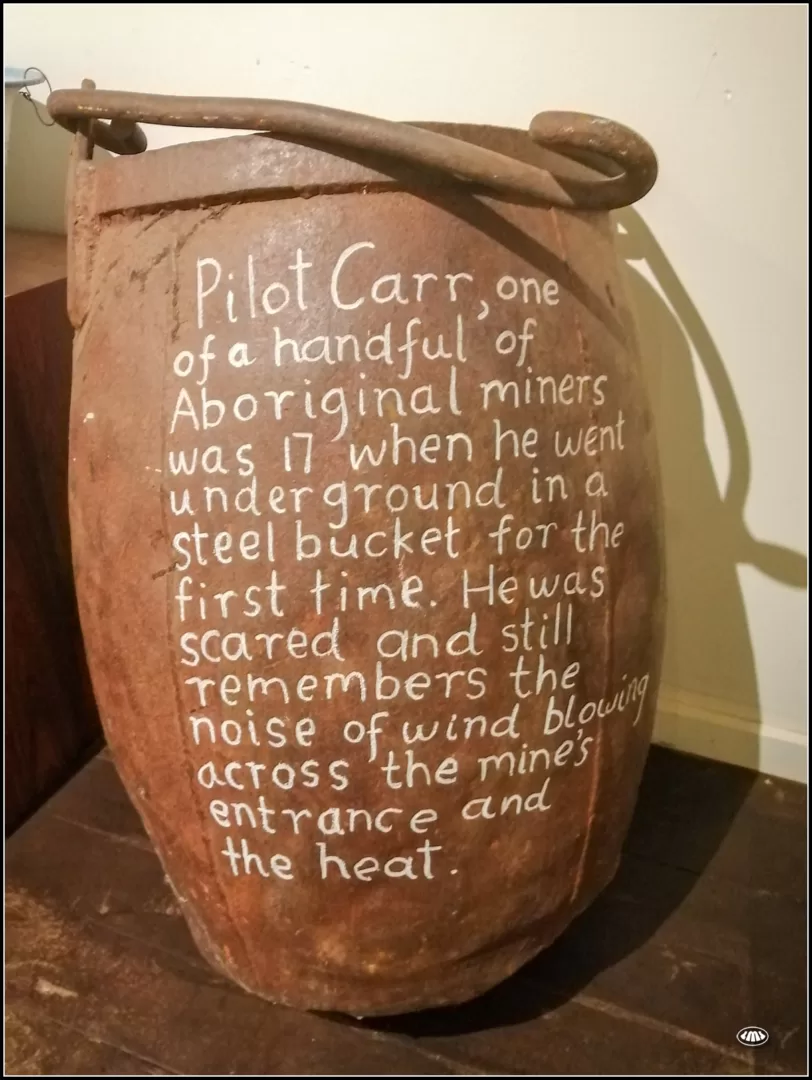 Pilot Carr, one
of a handful of
Aboriginal miners
was 17 when he went
underground in a
steel bucket for the
first time. He was
scared and still
remembers the
noise of wind blowing
across the mine's
entrance and
the heat.